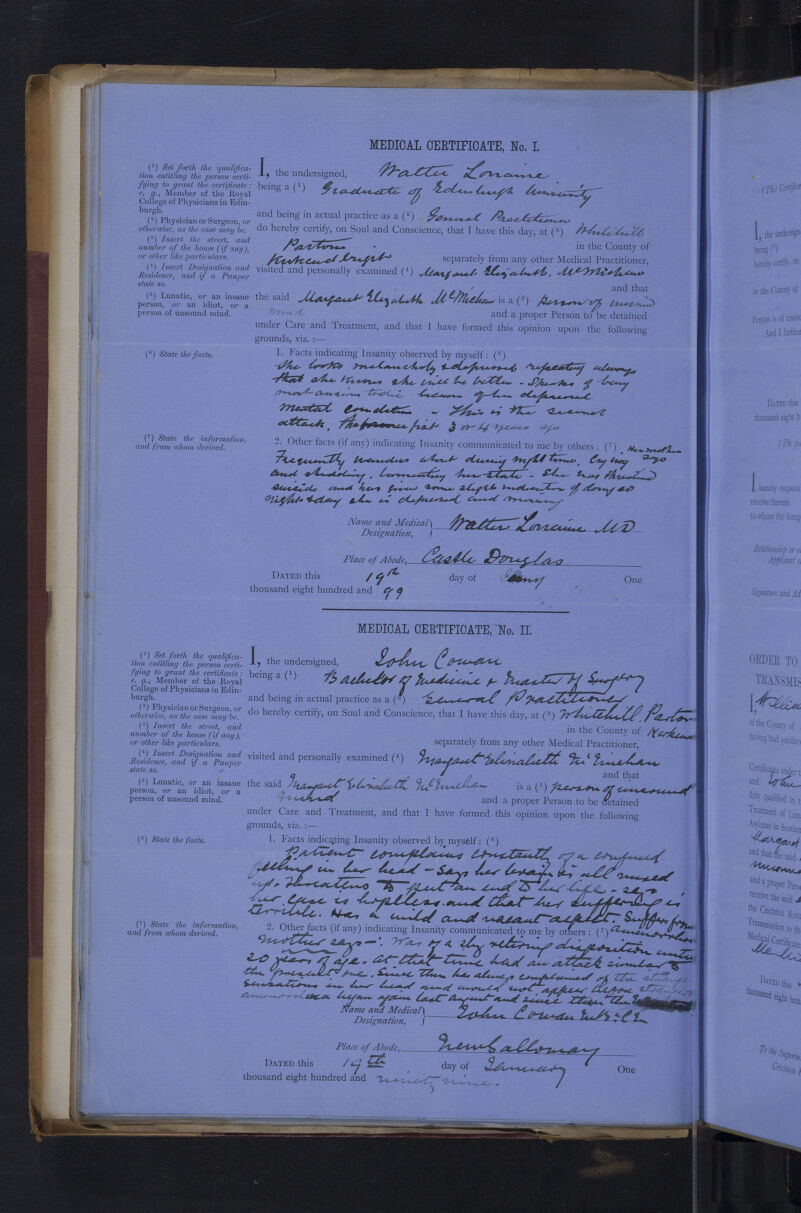 MEDICAL CERTIFICATE, No. I.
(¹) Set forth the qualifica-
tion entitling the person certi-
fying to grant the certificate:
e. g., Member of the Royal
College of Physicians in Edin-
burgh.
(²) Physician or Surgeon, or
otherwise, as the case may be.
(³) Insert the street, and
number of the house (if any),
or other like particulars.
(⁴) Insert Designation and
Residence, and if a Pauper
state so.
(⁵) Lunatic, or an insane
person, or an idiot, or a
person of unsound mind.
I, the undersigned, Walter Lorraine
being a (¹) Graduate of Edinburgh University
and being in actual practice as a (²) General Practitioner
do hereby certify, on Soul and Conscience, that I have this day, at (³) Whitehill
Parton in the County of
Kirkcudbright separately from any other Medical Practitioner,
visited and personally examined (⁴) Margaret Elizabeth McMichan
and that
the said Margaret Elizabeth McMichan is a (⁵) person of unsound
mind and a proper Person to be detained
under Care and Treatment, and that I have formed this opinion upon the following
grounds, viz. :—
(⁶) State the facts.
1. Facts indicating Insanity observed by myself: (⁶)
She looks melancholy & depressed repeating always
that she knows she will be better - Speaks of being
most anxious to die because of her depressed
mental condition - This is the second
attack. The first 3 or 4 years ago
(⁷) State the information,
and from whom derived.
2. Other facts (if any) indicating Insanity communicated to me by others: (⁷) Her mother
says
Frequently wanders about during night time, Crying
and shedding, lamenting her state - She has threatened
suicide and has given some slight indication of doing so
night & day she is depressed and moaning
Name and Medical
Designation, Walter Lorraine MD
Place of Abode, Castle Douglas
DATED this 19th day of One
thousand eight hundred and 99
MEDICAL CERTIFICATE, No. II.
(¹) Set forth the qualifica-
tion entitling the person certi-
fying to grant the certificate:
e. g., Member of the Royal
College of Physicians in Edin-
burgh.
(²) Physician or Surgeon, or
otherwise, as the case may be.
(³) Insert the street, and
number of the house (if any),
or other like particulars.
(⁴) Insert Designation and
Residence, and if a Pauper
state so.
(⁵) Lunatic, or an insane
person, or an idiot, or a
person of unsound mind.
I, the undersigned, John Cowan
being a (¹) Bachelor of Medicine & Master of Surgery
and being in actual practice as a (²) General Practitioner
do hereby certify, on Soul and Conscience, that I have this day, at (³) Whitehill, Parton
in the County of
separately from any other Medical Practitioner,
visited and personally examined (⁴) Margaret Elizabeth
and that
the said Margaret Elizabeth is a (⁵) person of unsound
mind and a proper Person to be detained
under Care and Treatment, and that I have formed this opinion upon the following
grounds, viz. :—
(⁶) State the facts.
1. Facts indicating Insanity observed by myself: (⁶)
Patient complains constantly of a confused
feeling in her head - says her brain is all mixed
up. Threatens to put an end to her life - says
her case is hopeless and that her suffering is
terrible. Has a mild and vacant aspect. Suffers from
amenorrhoea
(⁷) State the information,
and from whom derived.
2. Other facts (if any) indicating Insanity communicated to me by others: (⁷)
Mother says -: Was of a shy retiring disposition until
20 years of age. At that time had an attack similar to
the present one. Since then has always complained of the
sensations in her head and would not appear before strangers
amenorrhoea began again last August and since then the
Name and Medical
Designation, John Cowan M.B. & C.M.
Place of Abode, New Galloway
DATED this 19th day of January One
thousand eight hundred and ninety nine.
I, the undersign
being (¹)
hereby certify, on
in the County of
Person is of unsou
And I further
DATED this
thousand eight h
I hereby request
receive therein
to whom the foreg
Relationship or o
Applicant
Signature and Ad
ORDER TO
TRANSMIS
I, Willia
of the County of
having had produc
Certificates under
and John
duly qualified in
Treatment of Lun
Asylums in Scotlan
Margaret
and that the said
and a proper Pers
receive the said
the Crichton Roy
Transmission to th
Medical Certificate
DATED this
thousand eight hun
To the Superin
Crichton